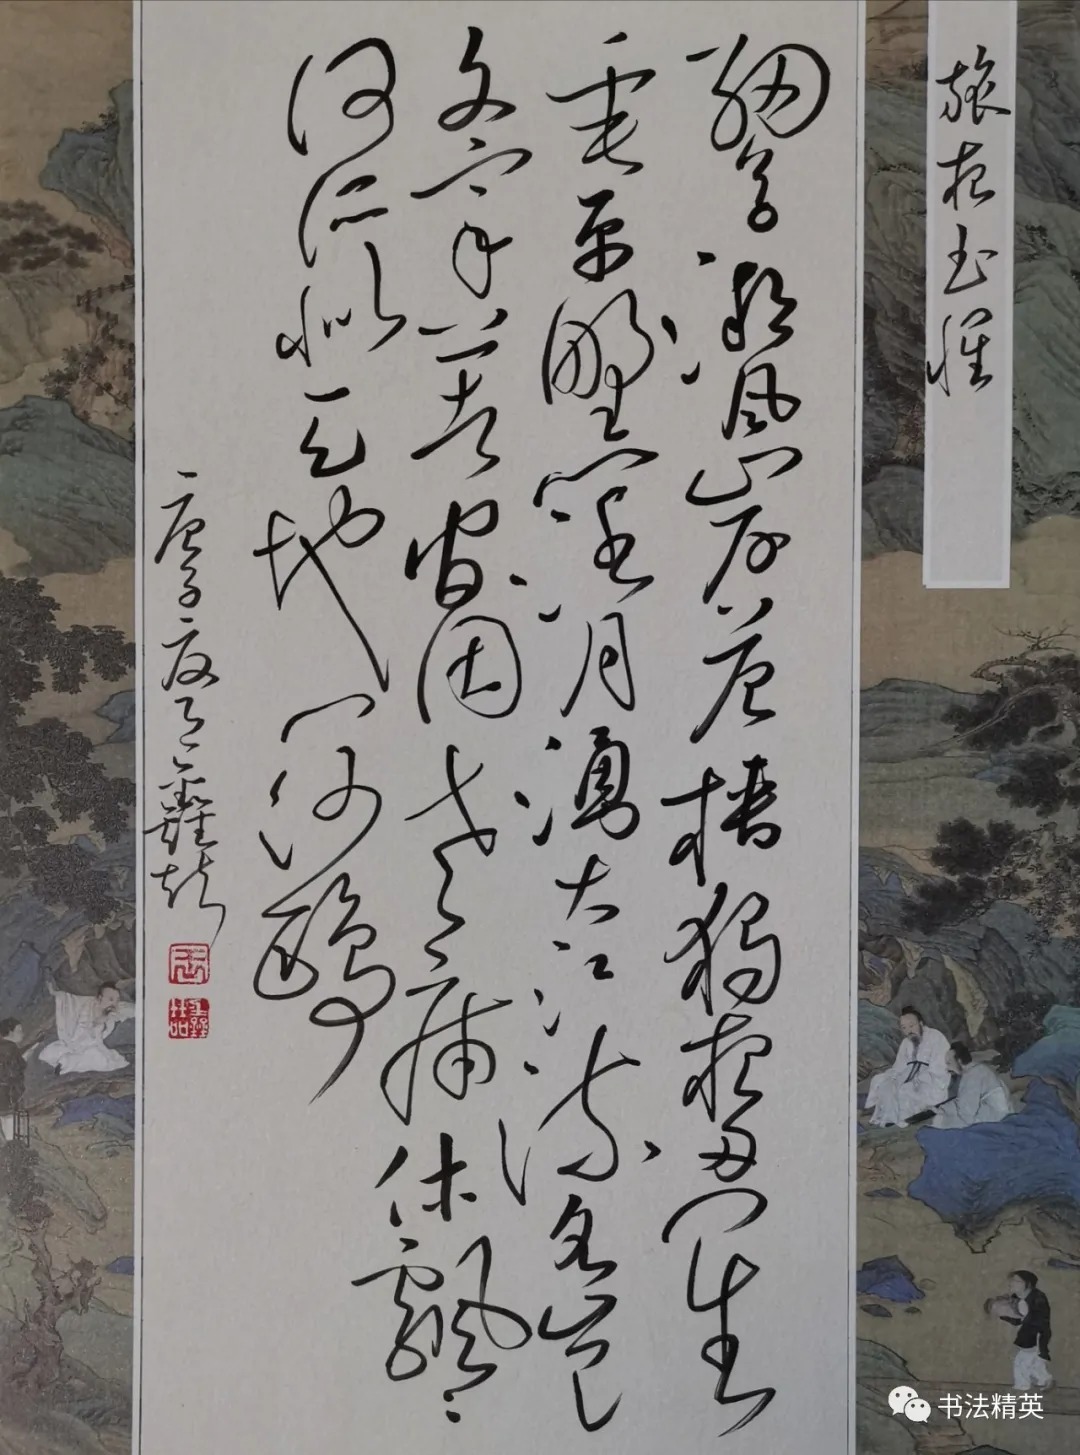 旅夜书怀
细草微风岸危樯独夜舟星
垂平野阔月涌大江流名岂
文章著官因老病休飘飘
何所似天地一沙鸥
庚子夏
书法精英